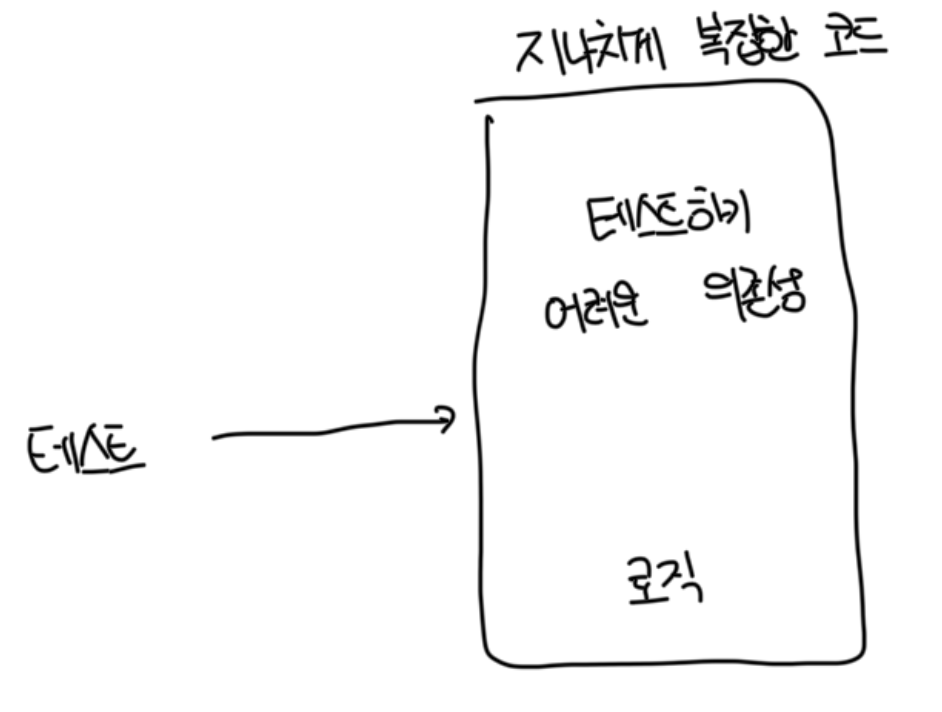 지나치게 복잡한 코드
테스트하기
어려운 의존성
테스트
로직